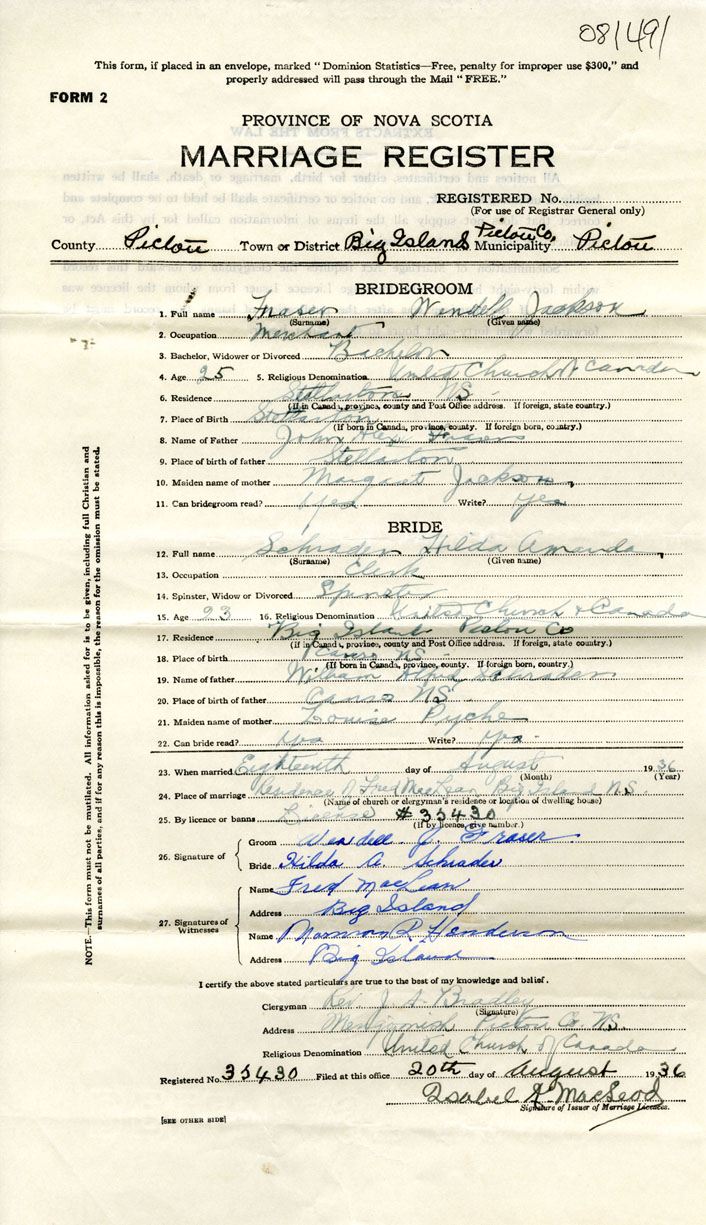 08/491
This form, if placed in an envelope, marked "Dominion Statistics—Free, penalty for improper use $300," and
properly addressed will pass through the Mail "FREE."
FORM 2
PROVINCE OF NOVA SCOTIA
MARRIAGE REGISTER
REGISTERED No.
(For use of Registrar General only)
County Pictou Town or District Big Island Pictou Co, Municipality Pictou
BRIDEGROOM
1. Full name Fraser Wendell Jackson
(Surname) (Given name)
2. Occupation Merchant
3. Bachelor, Widower or Divorced Bachelor
4. Age 25 5. Religious Denomination United Church of Canada
6. Residence Stellarton NS
(If in Canada, province, county and Post Office address. If foreign, state country.)
7. Place of Birth Stellarton
(If born in Canada, province, county. If foreign born, country.)
8. Name of Father John Alex Fraser
9. Place of birth of father Stellarton
10. Maiden name of mother Margaret Jackson
11. Can bridegroom read? Yes Write? Yes
BRIDE
12. Full name Schrader Hilda Amanda
(Surname) (Given name)
13. Occupation Clerk
14. Spinster, Widow or Divorced Spinster
15. Age 23 16. Religious Denomination United Church of Canada
17. Residence Big Island Pictou Co
(If in Canada, province, county and Post Office address. If foreign, state country.)
18. Place of birth Canso NS
(If born in Canada, province, county. If foreign born, country.)
19. Name of father William Schrader
20. Place of birth of father Canso NS
21. Maiden name of mother Louise Pyche
22. Can bride read? yes Write? yes
23. When married Eighteenth day of August 1936
(Month) (Year)
24. Place of marriage Residence of Fred MacLean Big Island N.S.
(Name of church or clergyman's residence or location of dwelling house)
25. By licence or banns License #35430
(If by licence, give number.)
26. Signature of { Groom Wendell J. Fraser
Bride Hilda A. Schrader
27. Signatures of Witnesses { Name Fred MacLean
Address Big Island
Name Norman R Henderson
Address Big Island
I certify the above stated particulars are true to the best of my knowledge and belief.
Clergyman Rev. J. A. Bradley
(Signature)
Address Merigomish Pictou Co N.S.
Religious Denomination United Church of Canada
Registered No. 35430 Filed at this office 20th day of August 1936
Isabel A. MacLeod
Signature of Issuer of Marriage Licences.
[SEE OTHER SIDE]
NOTE.—This form must not be mutilated. All information asked for is to be given, including full Christian and
surnames of all parties, and if for any reason this is impossible, the reason for the omission must be stated.